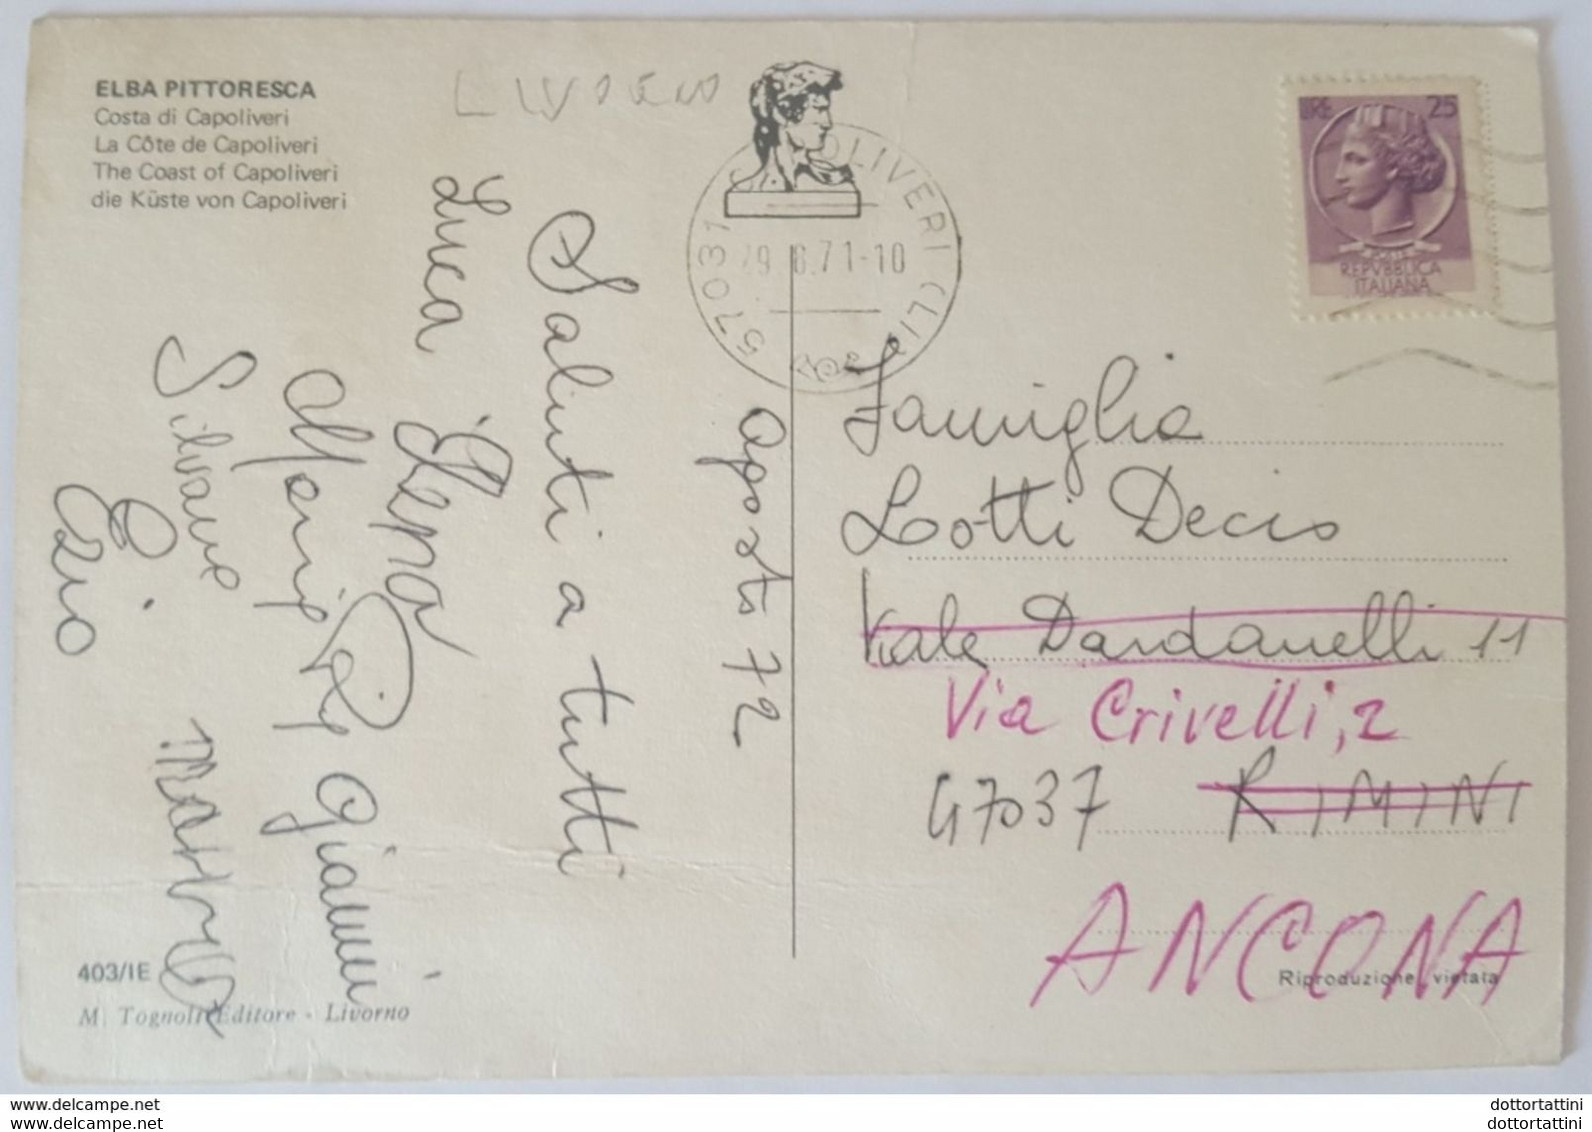 ELBA PITTORESCA
Costa di Capoliveri
La Côte de Capoliveri
The Coast of Capoliveri
die Küste von Capoliveri
LIVORNO
57031 CAPOLIVERI (LI)
29.8.71-10
LIRE 25
POSTE
REPVBBLICA
ITALIANA
agosto 72
Saluti a tutti
Luca
Elena
Gianni
Silvano
Ezio
Famiglia
Lotti Decio
Viale Dardanelli 11
Via Crivelli, 2
47037 RIMINI
ANCONA
Riproduzione vietata
403/IE
M. Tognoli Editore - Livorno
www.delcampe.net
dottortattini
www.delcampe.net
dottortattini